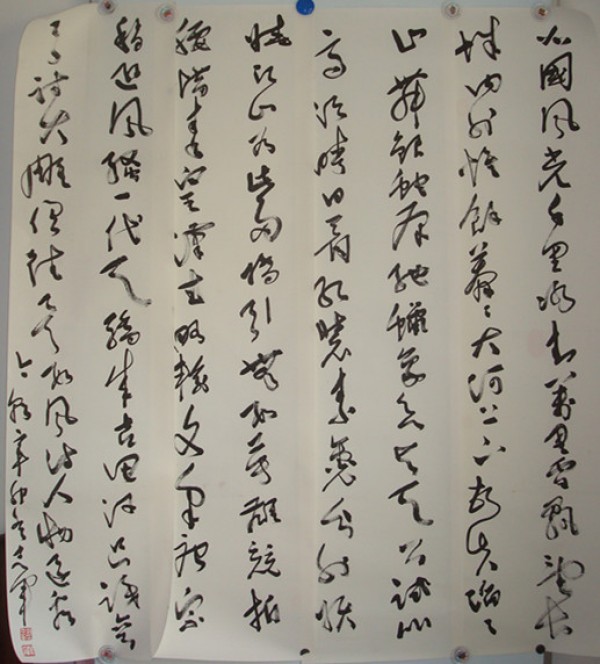 北國風光千里冰封萬里雪飄望長
城內外惟餘莽〻大河上下頓失滔〻
山舞銀蛇原馳蠟象欲與天公試比
高須晴日看紅裝素裹分外妖
嬈江山如此多嬌引無數英雄競折
腰惜秦皇漢武略輸文采唐宗
稍遜風騷一代天驕成吉思汗只識彎
弓射大雕俱往矣數風流人物還看
今朝辛卯冬